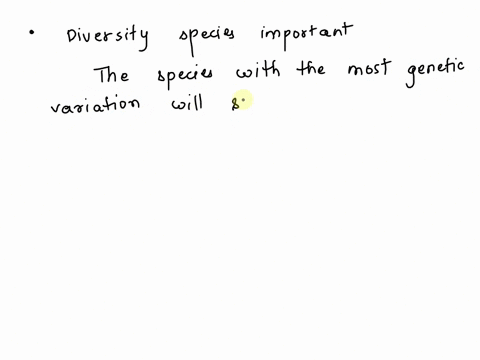 • Diversity species important
The species with the most genetic
variation will s